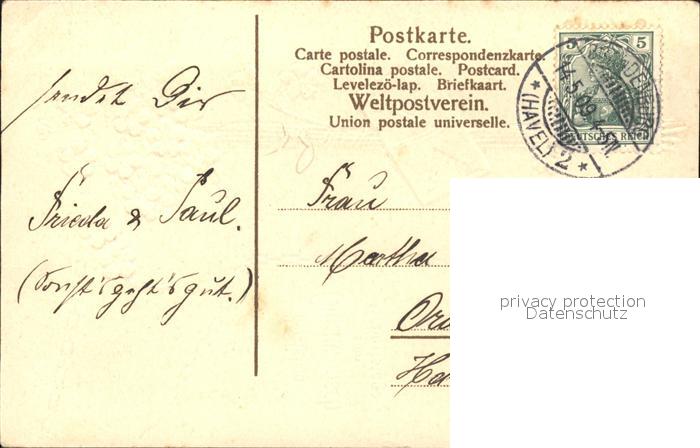 sendet Dir
Frieda & Paul.
(Sonst's geht's gut.)
Postkarte.
Carte postale. Correspondenzkarte.
Cartolina postale. Postcard.
Levelező-lap. Briefkaart.
Weltpostverein.
Union postale universelle.
5 5
DEUTSCHES REICH
BRANDENBURG
14.5.09
* (HAVEL) 2 *
Frau
Martha
Ora
Ha
privacy protection
Datenschutz